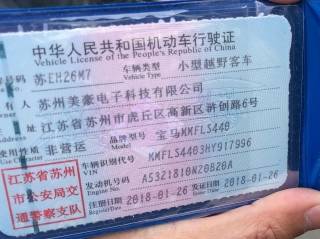 中华人民共和国机动车行驶证
Vehicle License of the People's Republic of China
号码 苏EH26M7 车辆类型 小型越野客车
Vehicle Type
人 苏州美豪电子科技有限公司
址 江苏省苏州市虎丘区高新区浒创路6号
使用性质 非营运 品牌型号 宝马KMFLS440
车辆识别代号 KMFLS4403HY917996
VIN
江苏省苏州 发动机号码 A5321810N20B20A
市公安局交 Engine No.
通警察支队 注册日期 2018-01-26 发证日期 2018-01-26
Register Date Issue Date